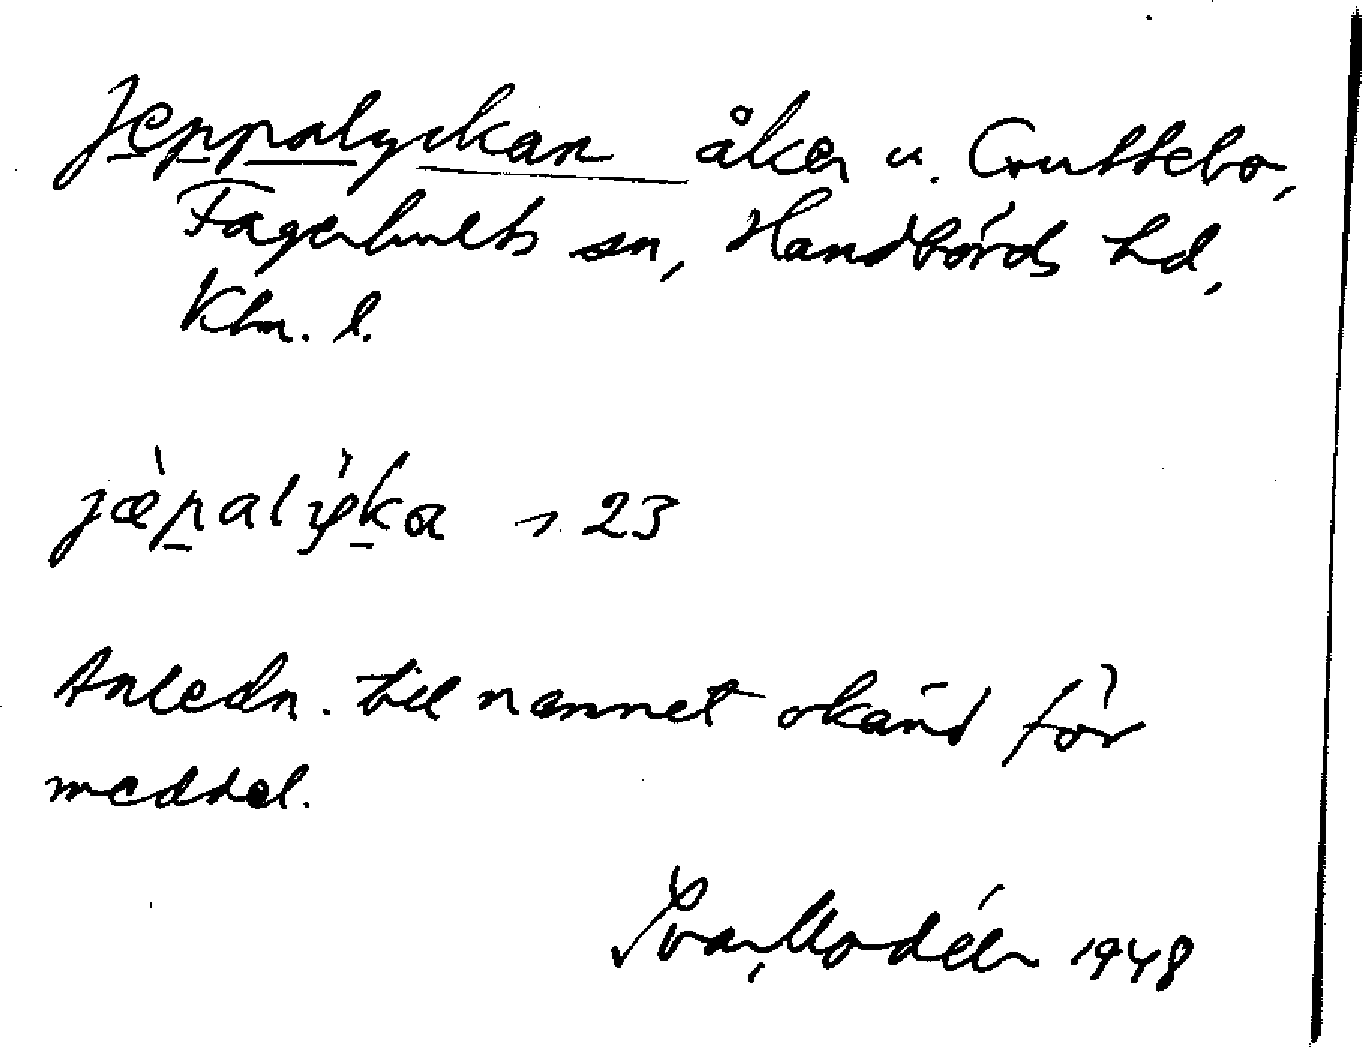 Jeppalyckan åker u. Gruttebo,
Fagerhults sn, Handbörds hd,
Klm. l.
jæ̀palỳka ⇁ 23
Anledn. till namnet okänd för
meddel.
Ivar Modéer 1948